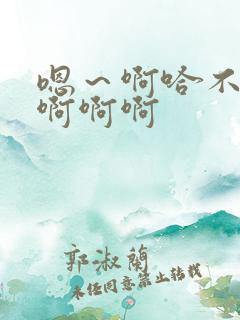 嗯～啊哈不
啊啊啊
郭淑兰
未经同意禁止转载